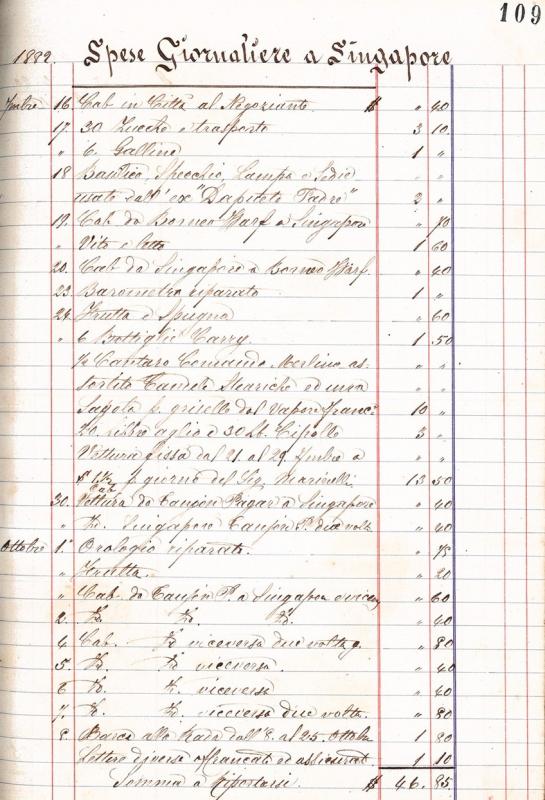 109
1889. Spese Giornaliere a Singapore
7mbre 16. Cab in Città al Negoziante. $ " 40
17. 30 Zucche e trasporto 3 10.
" 6. Galline 1 "
18 Baulico, Specchio, Lampa e Sedie " "
usate dall' ex " Padre" 2 "
19. Cab da Borneo Warf a Singapore " 70
" Vito e letto 1 60
20. Cab da Singapore a Borneo Warf. " 40
23. Barometro riparato 1 "
24. Frutta e Spugna " 60
" 6 Bottiglie Carry. 1 50
½ Cantaro Comando Merlino as- " "
sortito Candele Steariche ed una " "
Sagola p. griselle dal Vapor franc.e 10 "
20. libbre aglio e 30 lb. Cipolle 3 "
Vettura fissa dal 21. al 29. 7mbre a " "
$ 1.½ p. giorno del Sig. Marinelli 13 50
30. Vettura da Tanjon Pagar a Singapore " 40
" Do. Singapore Tanjon P. due volte " 40
Ottobre 1.° Orologio riparato. " 75
" Frutta. " 20
" Cab. da Tanjon P. a Singapore e vicev. " 60
2. Do. Do. Do. " 40
4. Cab. Do viceversa due volte " 80
5. Do. Do viceversa. " 40
6 Do. Do. viceversa " 40
7. Do. Do. viceversa due volte. " 80
8. Barca alla Rada dall'8. al 25. Ottobre 1 80
Lettere diverse affrancate ed assicurat. 1 10
Somma a Riportarsi. $ 46. 85.